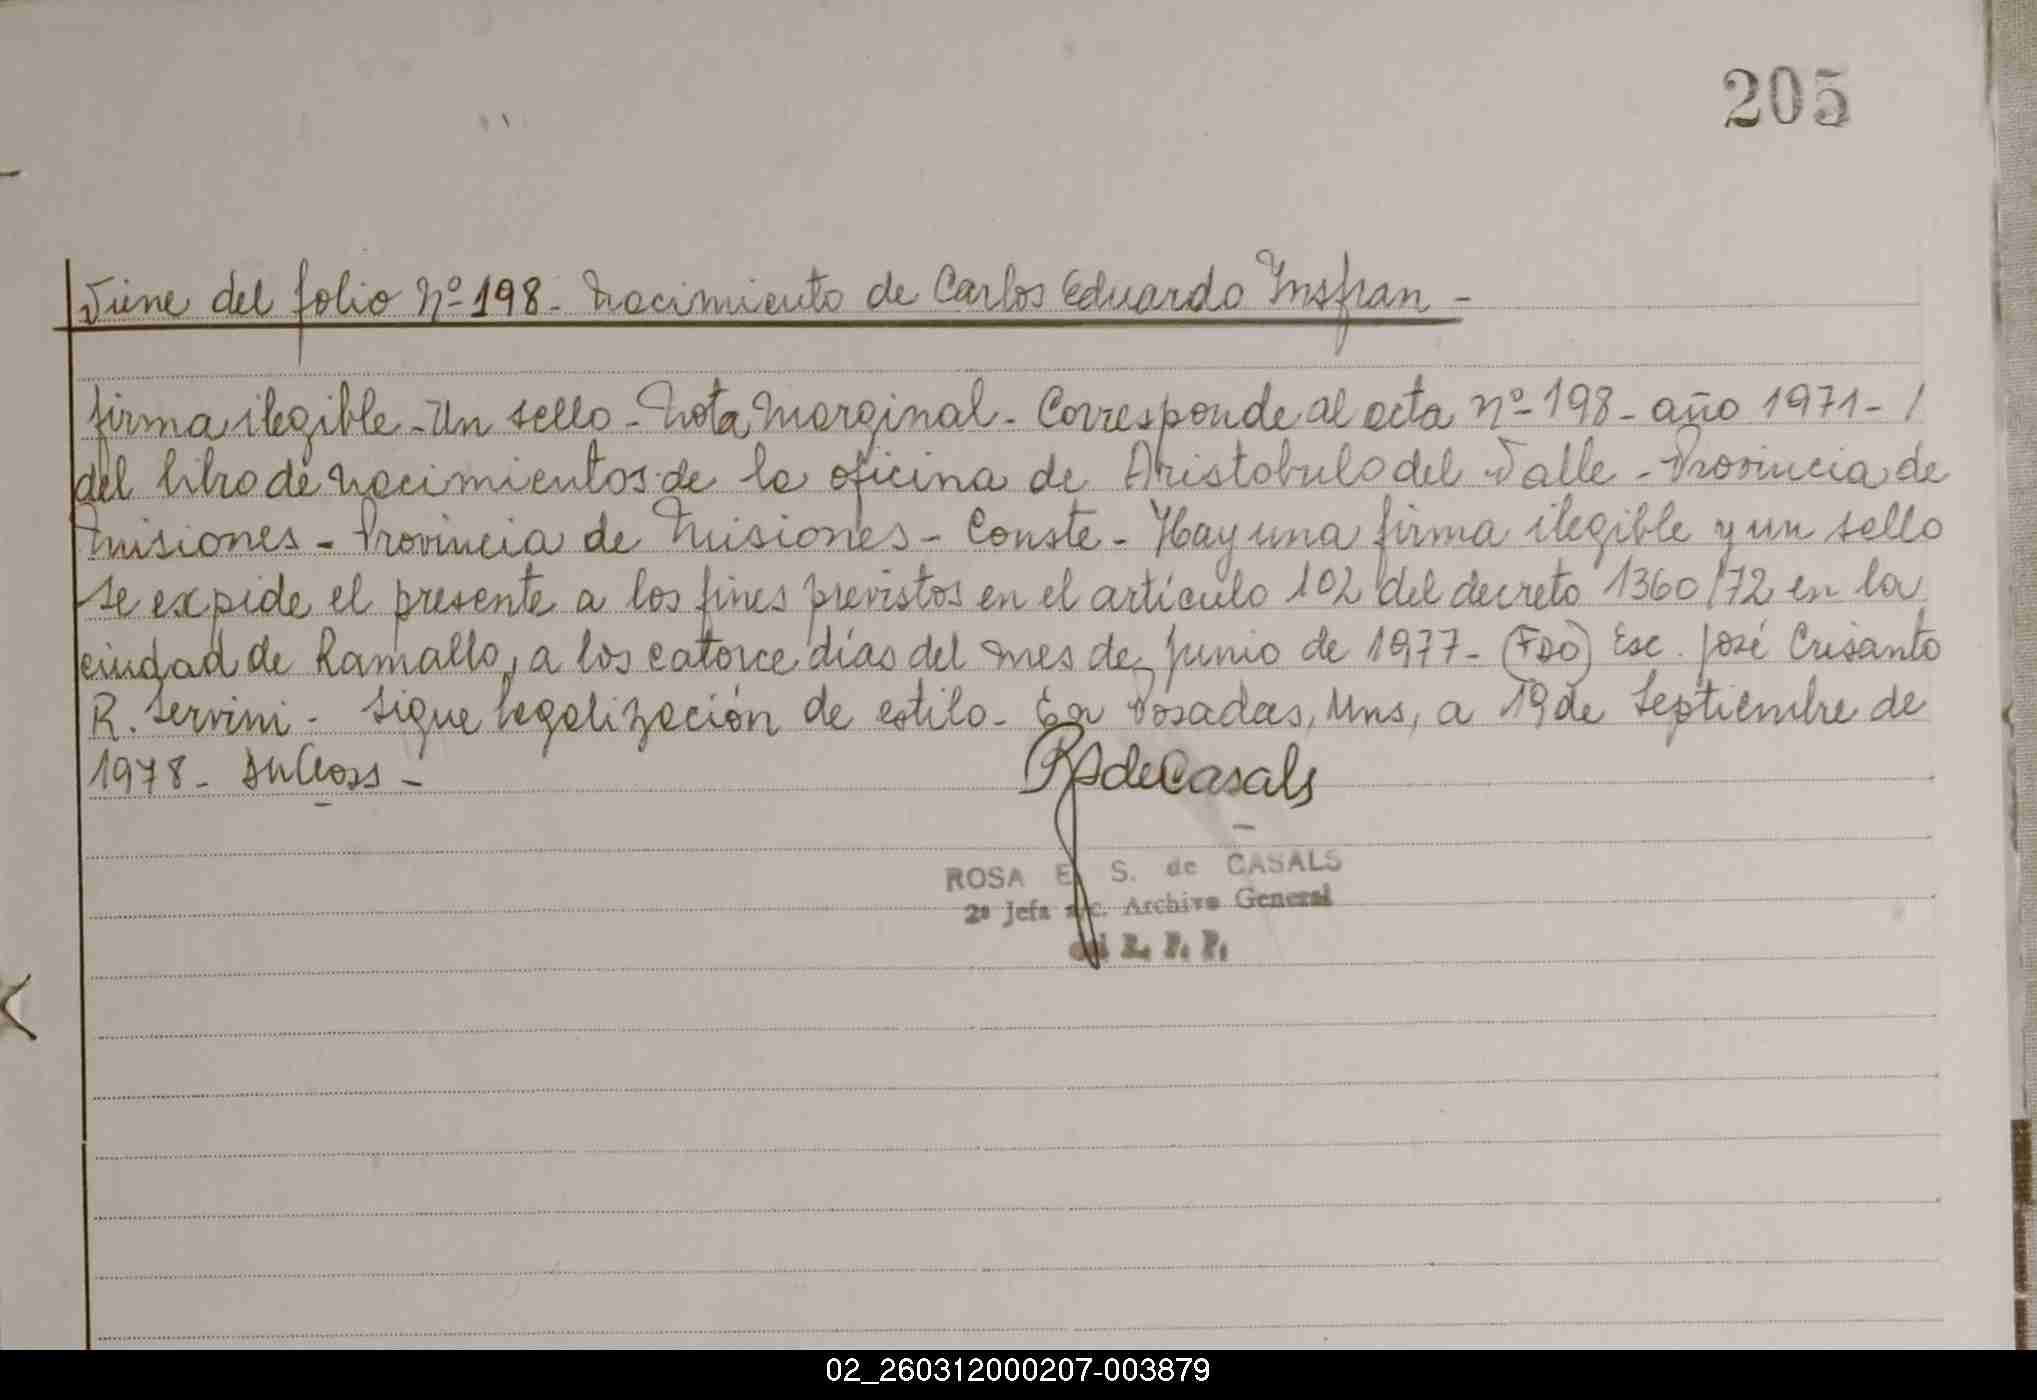 205
Viene del folio Nº 198 - Nacimiento de Carlos Eduardo Insfran -
firma ilegible - Un sello - Nota Marginal - Corresponde al acta nº 198 - año 1971 - /
del libro de Nacimientos de la oficina de Aristobulo del Valle - Provincia de
Misiones - Provincia de Misiones - Conste - Hay una firma ilegible y un sello
se expide el presente a los fines previstos en el artículo 102 del decreto 1360/72 en la
ciudad de Ramallo, a los catorce días del mes de junio de 1977 - (FDO) Esc. José Crisanto
R. Servini - Sigue legalización de estilo - En Posadas, Mns, a 19 de Septiembre de
1978 -
RSdeCasals
ROSA E. S. de CASALS
2ª Jefa a/c. Archivo General
del R. P. P.
02_260312000207-003879